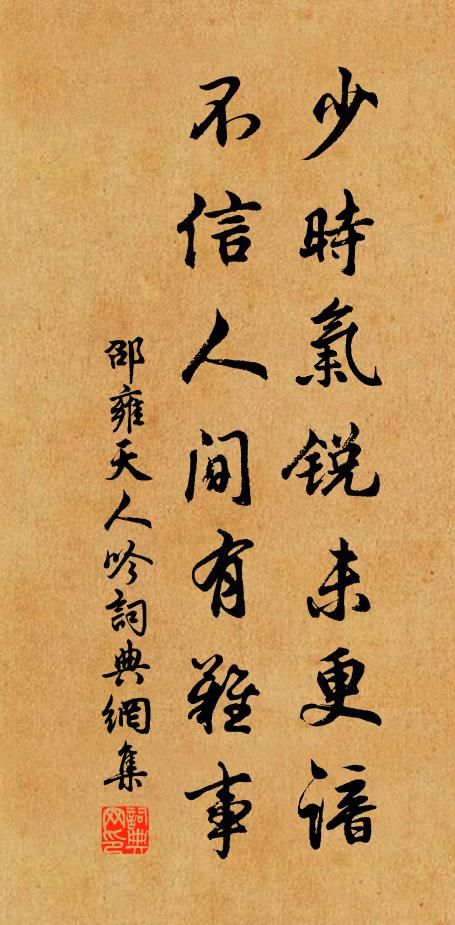 少時氣銳未更諳
不信人間有難事
邵雍天人吟詞典網集
詞典網印